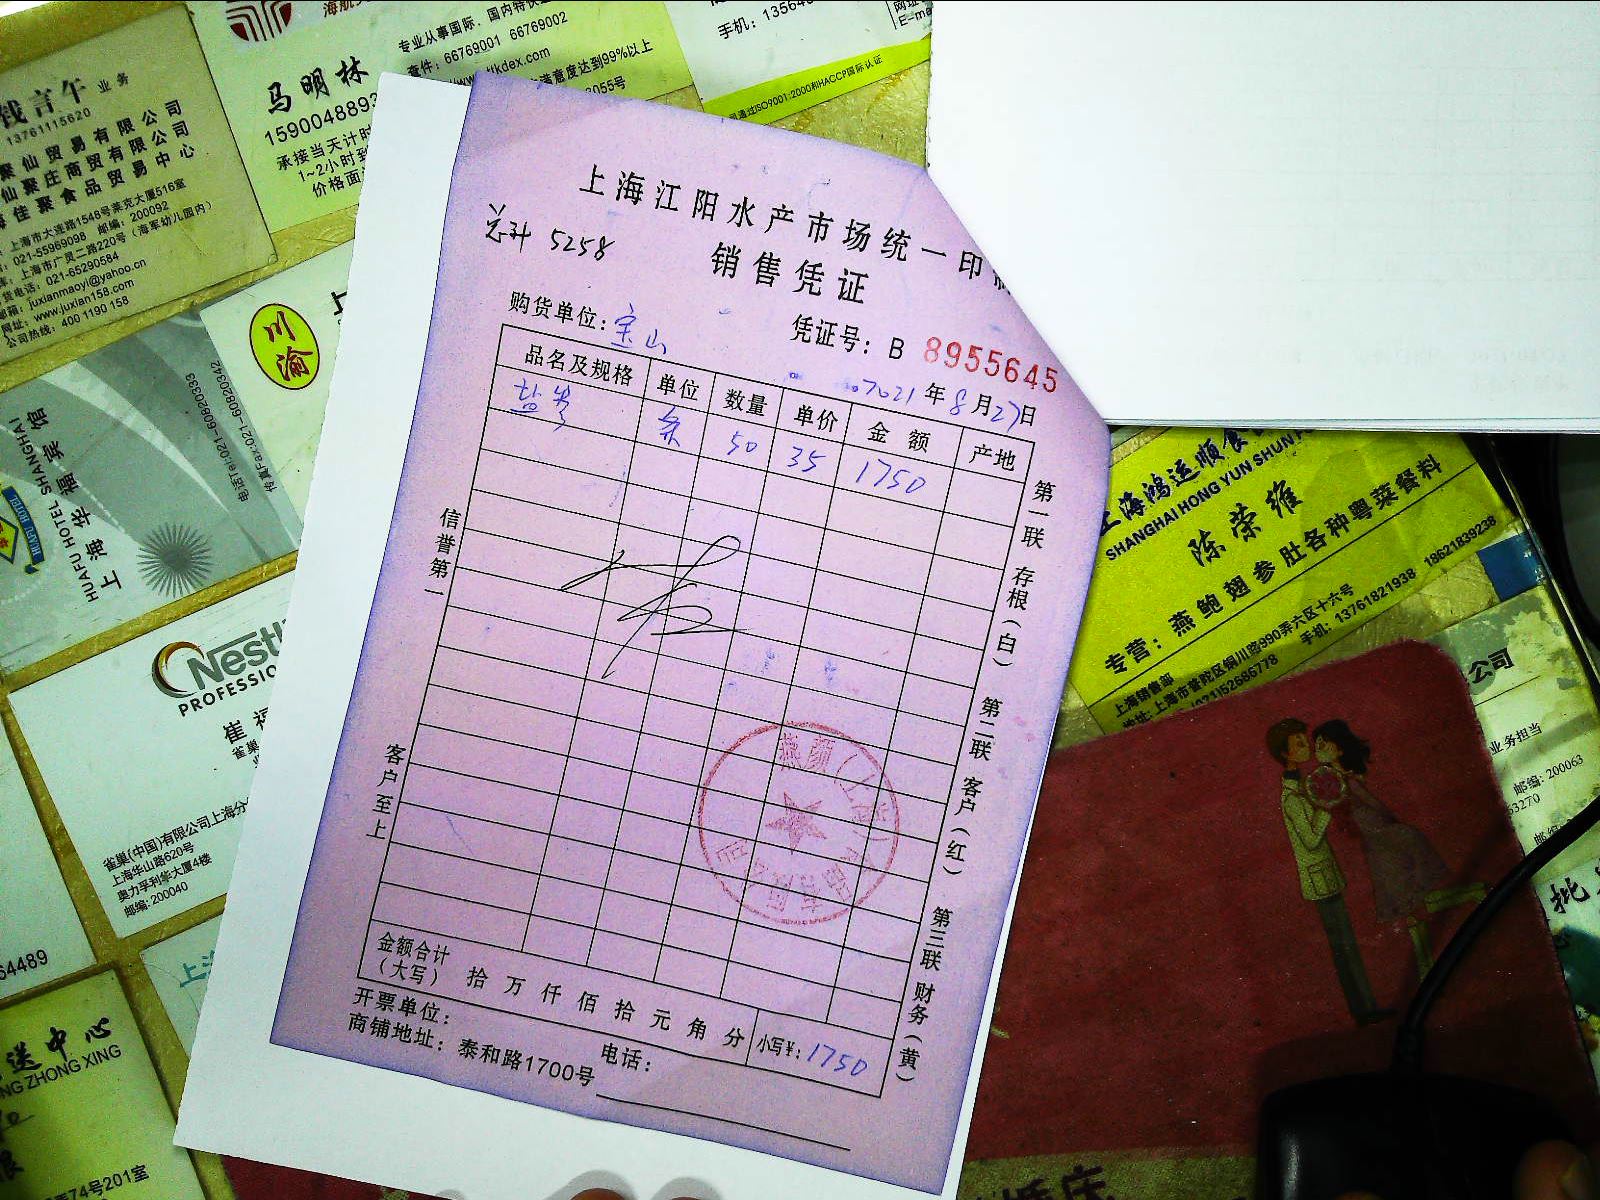 钱言午 业务
13761115620
聚仙贸易有限公司
仙聚庄商贸有限公司
海佳聚食品贸易中心
上海市大连路1548号莱克大厦516室
021-55969098 邮编：200092
上海市广灵二路220号（海军幼儿园内）
货电话：021-65290584
邮箱：juxianmaoyi@yahoo.cn
网址：www.juxian158.com
公司热线：400 1190 158
专业从事国际、国内特快
查件：66769001 66769002
满意度达到99%以上
马明林
1590048893
承接当天计时
1~2小时到
价格面
手机：13564
网址
E-ma
通过ISO9001:2000和HACCP国际认证
川渝
HUAFU HOTEL SHANGHAI
上海华福宾馆
电话Tel:021-60820333
传真Fax:021-60820342
Nestl
PROFESSIO
崔福
雀巢
雀巢(中国)有限公司上海分
上海华山路620号
奥力孚利华大厦4楼
邮编: 200040
64489
送中心
NG ZHONG XING
弄74号201室
上海江阳水产市场统一印
销售凭证
总计 5258
购货单位：宝山
凭证号：B 8955645
2021年8月27日
品名及规格 单位 数量 单价 金额 产地
条 50 35 1750
信誉第一
客户至上
第一联 存根（白） 第二联 客户（红） 第三联 财务（黄）
金额合计
（大写） 拾 万 仟 佰 拾 元 角 分 小写¥：1750
开票单位：
电话：
商铺地址：泰和路1700号
上海鸿运顺食
SHANGHAI HONG YUN SHUN
陈荣维
专营：燕鲍翅参肚各种粤菜餐料
上海销售部
地址：上海市普陀区铜川路990弄六区十六号
(021)52686778 手机：13761821938 18621839238
公司
业务担当
邮编: 200063
63270